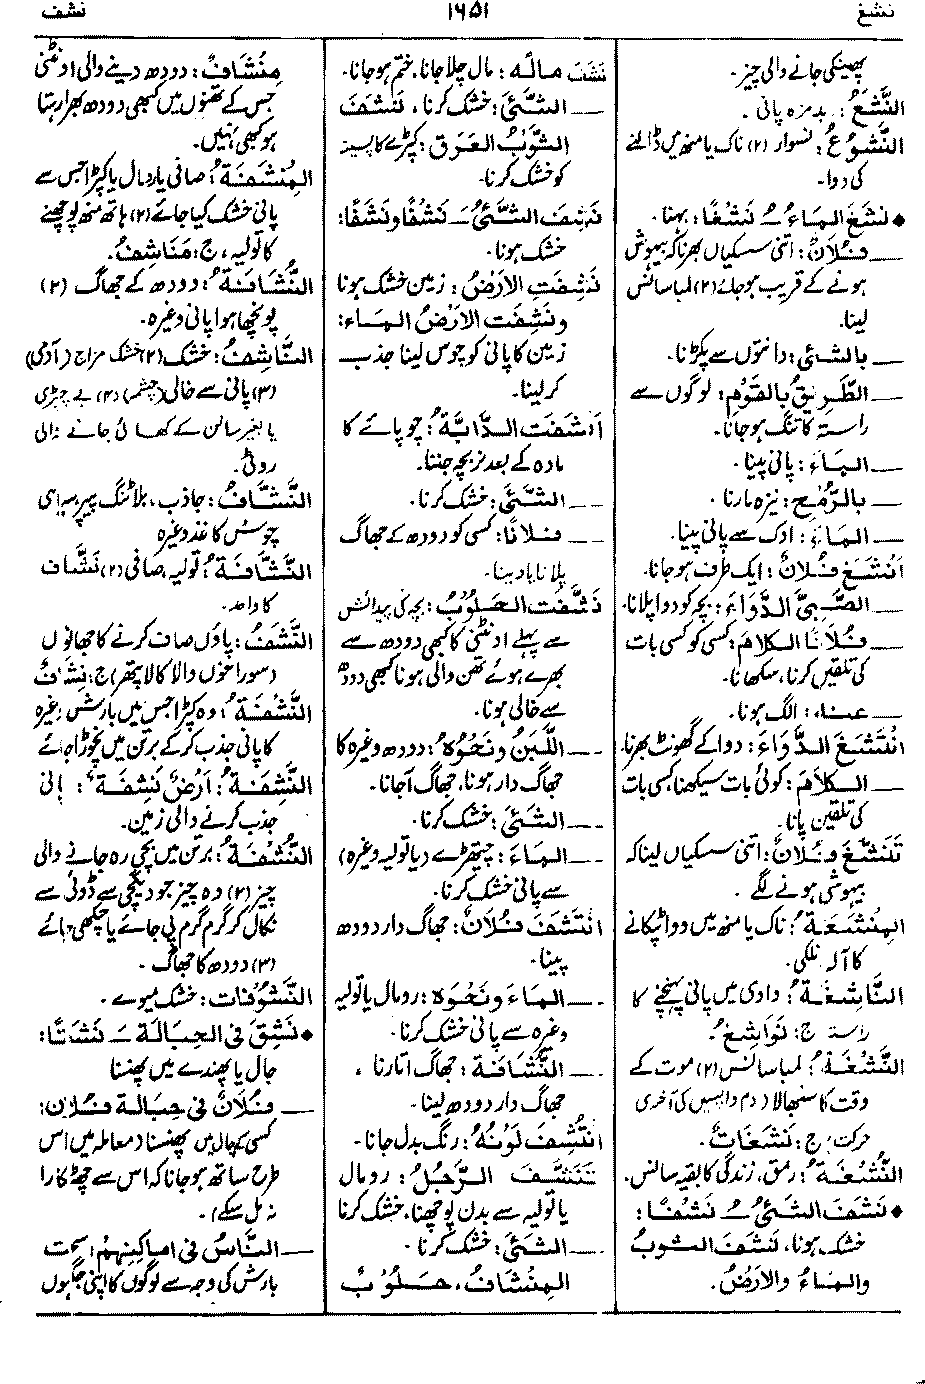 نشغ
۱۶۵۱
نشف
پھینکی جانے والی چیز۔
النَّشَغُ: بدمزہ پانی۔
النَّشُوغُ: نسوار (۲) ناک یا منھ میں ڈالنے
کی دوا۔
• نَشَغَ المَاءُ ـُ نَشْغًا: بہنا۔
ـــ فُلَانٌ: اتنی سسکیاں بھرنا کہ بیہوش
ہونے کے قریب ہوجائے (۲) لمبا سانس
لینا۔
ـــ بالشئِ: دانتوں سے پکڑنا۔
ـــ الطَّرِيْقُ بِالقَوْمِ: لوگوں سے
راستہ کا تنگ ہوجانا۔
ـــ المَاءَ: پانی پینا۔
ـــ بِالرُّمْحِ: نیزہ مارنا۔
ـــ المَاءَ: اوک سے پانی پینا۔
اَنْشَغَ فُلَانٌ: ایک طرف ہوجانا۔
ـــ الصَّبِيَّ الدَّوَاءَ: بچہ کو دوا پلانا۔
ـــ فُلَانًا الكلامَ: کسی کو کسی بات
کی تلقین کرنا، سکھانا۔
ـــ عنه: الگ ہونا۔
انْتَشَغَ الدَّوَاءَ: دوا کے گھونٹ بھرنا۔
ـــ الكلامَ: کوئی بات سیکھنا، کسی بات
کی تلقین پانا۔
تَنَشَّغَ فُلَانٌ: اتنی سسکیاں لینا کہ
بیہوشی ہونے لگے۔
المِنْشَغَةُ: ناک یا منھ میں دوا ٹپکانے
کا آلہ نلکی۔
النَّاشِغَةُ: وادی میں پانی پہنچنے کا
راستہ ج: نَوَاشِغُ۔
النَّشْغَةُ: لمبا سانس (۲) موت کے
وقت کا سنبھالا (دم واپسیں کی آخری
حرکت) ج: نَشَغَاتٌ۔
النُّشْغَةُ: رمق، زندگی کا بقیہ سانس۔
• نَشَفَ الشَّئُ ـُ نَشْفًا:
خشک ہونا، نَشَفَ الثوبُ
والمَاءُ والارْضُ۔
نَشَفَ مالُه: مال چلا جانا، ختم ہوجانا۔
ـــ الشَّئَ: خشک کرنا، نَشَفَ
الثَّوْبُ العَرَقَ: کپڑے کا پسینہ
کو خشک کرنا۔
نَشِفَ الشَّئُ ـَ نَشْفًا ونَشَفًا:
خشک ہونا۔
نَشِفَتِ الاَرْضُ: زمین خشک ہونا
ونَشِفَتِ الاَرْضُ المَاءَ:
زمین کا پانی کو چوس لینا جذب
کرلینا۔
اَنْشَفَتِ الدَّابَّةُ: چوپائے کا
مادہ کے بعد نر بچہ جننا۔
ـــ الشَّئَ: خشک کرنا۔
ـــ فُلَانًا: کسی کو دودھ کے جھاگ
پلانا یا دینا۔
نَشَّفَتِ الحَلُوْبُ: بچہ کی پیدائش
سے پہلے اونٹنی کا کبھی دودھ سے
بھرے ہوئے تھن والی ہونا کبھی دودھ
سے خالی ہونا۔
ـــ اللَّبَنُ ونَحْوُهُ: دودھ وغیرہ کا
جھاگ دار ہونا، جھاگ آجانا۔
ـــ الشَّئَ: خشک کرنا۔
ـــ المَاءَ: چیتھڑے (یا تولیہ وغیرہ)
سے پانی خشک کرنا۔
انْتَشَفَ فُلَانٌ: جھاگ دار دودھ
پینا۔
ـــ المَاءَ ونَحْوَهُ: رومال یا تولیہ
وغیرہ سے پانی خشک کرنا۔
ـــ النُّشَافَةَ: جھاگ اتارنا،
جھاگ دار دودھ لینا۔
انْتُشِفَ لَوْنُهُ: رنگ بدل جانا۔
تَنَشَّفَ الرَّجُلُ: رومال
یا تولیہ سے بدن پوچھنا، خشک کرنا
ـــ الشَّئَ: خشک کرنا۔
المِنْشَافُ، حَلُوْبٌ
مِنْشَافٌ: دودھ دینے والی اونٹنی
جس کے تھنوں میں کبھی دودھ بھرا رہتا
ہو کبھی نہیں۔
المِنْشَفَةُ: صافی یا رومال یا کپڑا جس سے
پانی خشک کیا جائے (۲) ہاتھ منھ پوچھنے
کا تولیہ، ج: مَنَاشِفُ۔
النُّشَافَةُ: دودھ کے جھاگ (۲)
پونچھا ہوا پانی وغیرہ۔
النَّاشِفُ: خشک (۲) خشک مزاج (آدمی)
(۳) پانی سے خالی (چشمہ) (۴) بے چپڑی
یا بغیر سالن کے کھائی جانے والی
روٹی۔
النَّشَّافُ: جاذب، بلاٹنگ پیپر، سیاہی
چوس کاغذ وغیرہ
النَّشَّافَةُ: تولیہ، صافی (۲) نَشَّاف
کا واحد۔
النَّشَفُ: پاؤں صاف کرنے کا جھانواں
(سوراخوں والا کالا پتھر) ج: نِشَافٌ
النَّشْفَةُ: وہ کپڑا جس میں بارش وغیرہ
کا پانی جذب کرکے برتن میں نچوڑا جائے
النَّشِفَةُ: اَرْضٌ نَشِفَةٌ: پانی
جذب کرنے والی زمین۔
النُّشْفَةُ: برتن میں بچی رہ جانے والی
چیز (۲) وہ چیز جو دیگچی سے ڈوئی سے
نکال کر گرم گرم پی جائے یا چکھی جائے
(۳) دودھ کا جھاگ۔
النَّشُوْفَات: خشک میوے۔
• نَشِقَ فى الحِبَالَةِ ـَ نَشَقًا:
جال یا پھندے میں پھنسنا
ـــ فُلَانٌ فى حِبَالَةِ فُلَانٍ:
کسی کے جال میں پھنسنا (معاملہ میں اس
طرح ساتھ ہوجانا کہ اس سے چھٹکارا
نہ مل سکے)۔
ـــ النَّاسُ فى اَماكِنِهِمْ: سخت
بارش کی وجہ سے لوگوں کا اپنی جگہوں